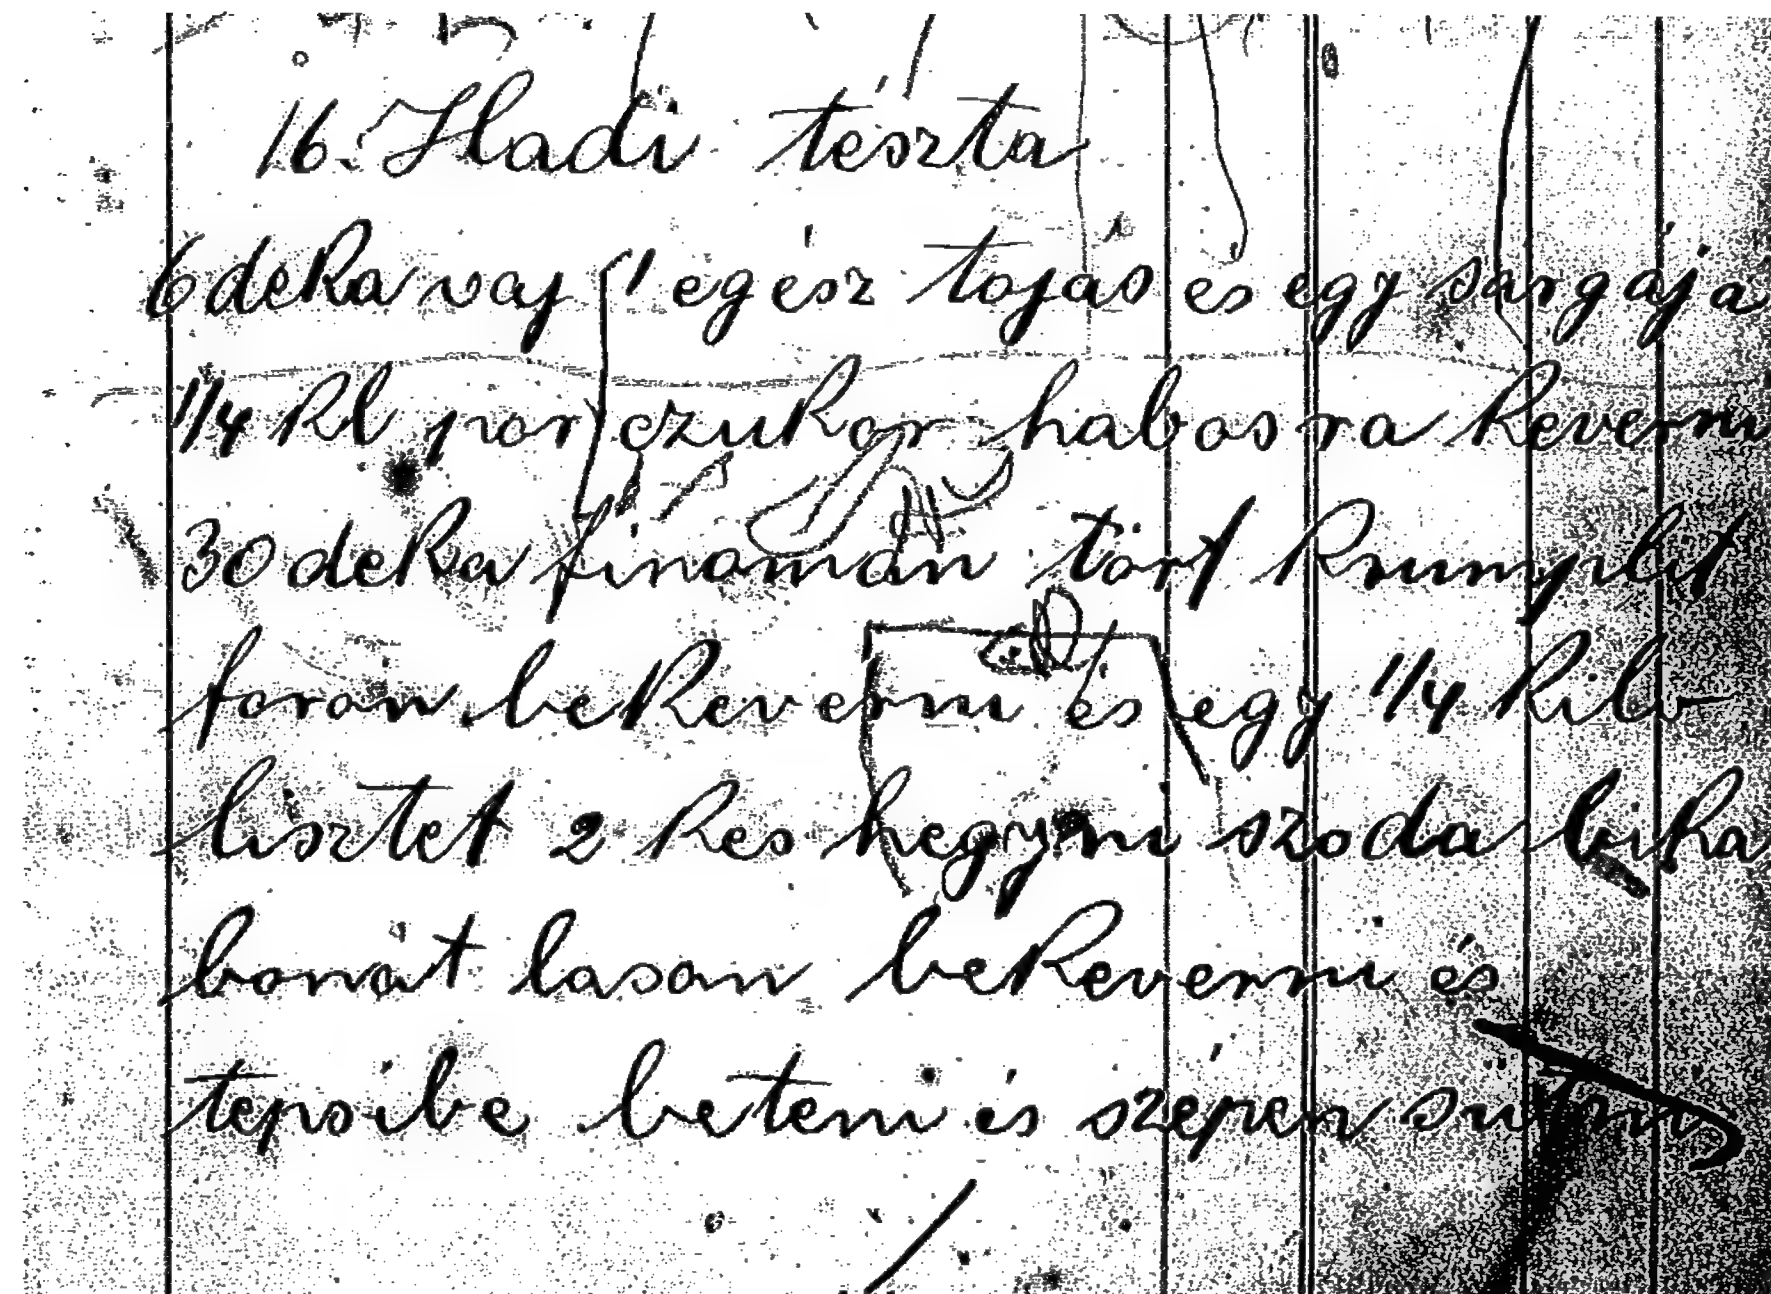 16. Hadi tészta
6 deka vaj 1 egész tojás és egy sárgája
1/4 kl por czukor habosra keverni
30 deka finomán tört krumplit
forón bekeverni és egy 1/4 kiló
lisztet 2 kés hegyni szoda bika
bonát lasan bekeverni és
tepsibe beteni és szépen sütni